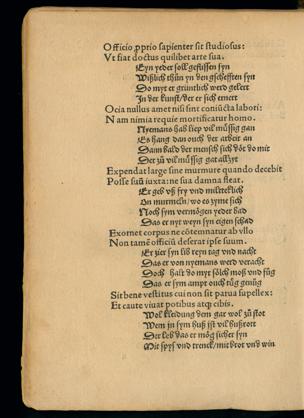 Officio ꝓprio sapienter sit studiosus:
Vt fiat doctus quilibet arte sua.
Eyn yeder soll geflissen syn
Wißlich thůn yn den gschefften syn
Do myt er grüntlich werd gelert
In der kunst/ der er sich emert
Ocia nullus amet nisi sint coniũcta labori:
Nam nimia requie mortificatur homo.
Nyemans hab liep vil müssig gan
Es hang dan ouch der arbeit an
Dann bald der mensch sich dot do mit
Der zů vil müssig gat allzyt
Expendat large sine murmure quando decebit
Posse suũ iuxta: ne sua damna fleat.
Er geb vß fry und milteklich
On murmeln/ wo es zyme sich
Noch sym vermögen yeder bad
Das er nyt weyn syn eigen schad
Exornet corpus ne cõtemnatur ab vllo
Non tamẽ officiũ deserat ipse suum.
Er zier syn lib reyn tag und nacht
Das er von nyemans werd veracht
Doch halt do myt sölch moß und fůg
Das er sym ampt ouch tůg genůg
Sit bene vestitus cui non sit parua supellex:
Et caute viuat potibus atq̃ cibis.
Wol kleidung dem gar wol zů stot
Wem jn sym huß ist vil hußrott
Der leb das er mög sicher syn
Mit spys und tranck/ mit brot vnd win